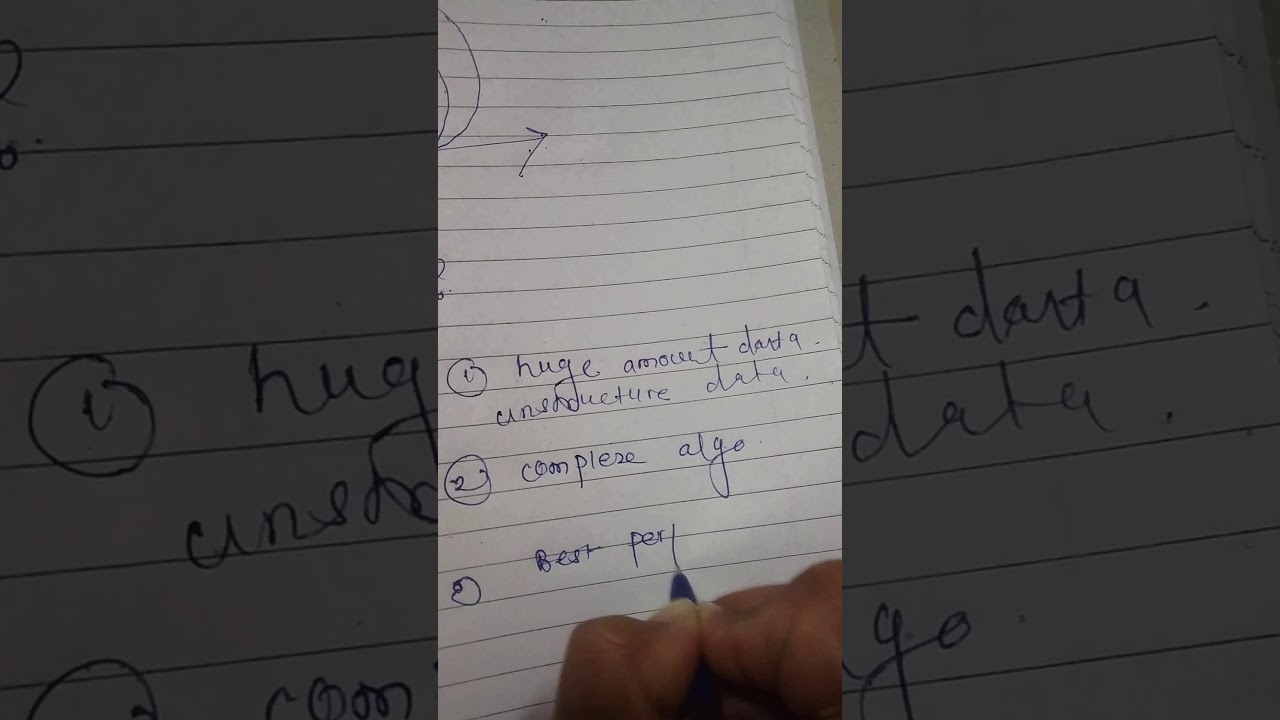 ① huge amount data.
unstructure data.
② complexe algo.
Best perf
2)